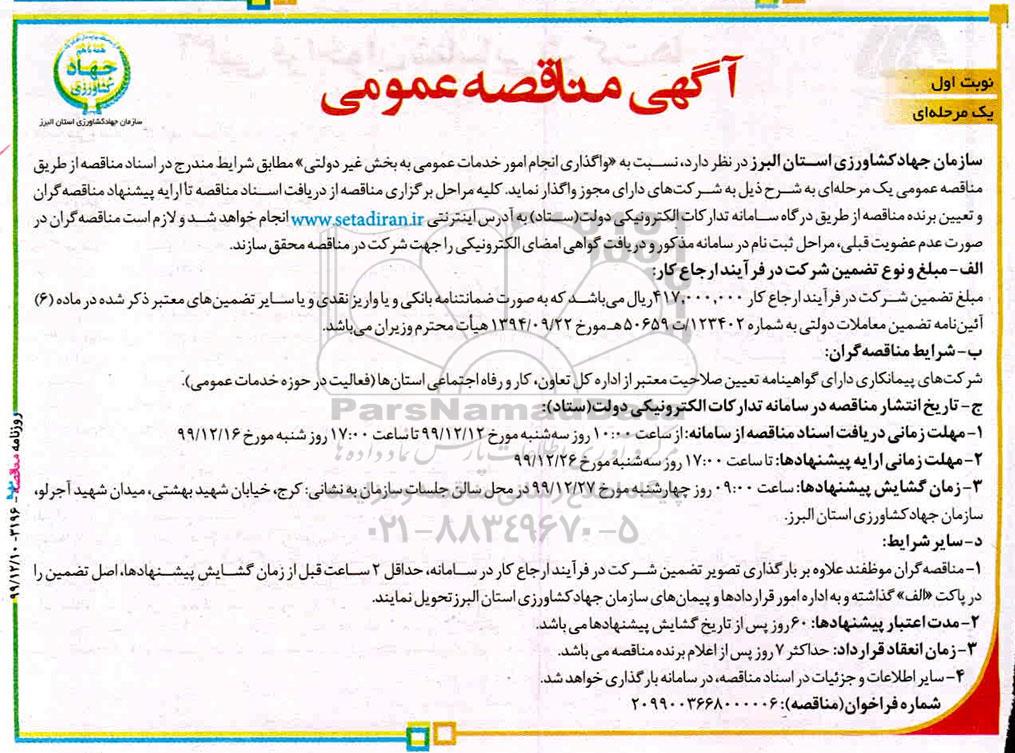 آگهی مناقصه عمومی
نوبت اول
یک مرحله‌ای
جهاد کشاورزی
سازمان جهادکشاورزی استان البرز
سازمان جهادکشاورزی استان البرز در نظر دارد، نسبت به «واگذاری انجام امور خدمات عمومی به بخش غیر دولتی» مطابق شرایط مندرج در اسناد مناقصه از طریق
مناقصه عمومی یک مرحله‌ای به شرح ذیل به شرکت‌های دارای مجوز واگذار نماید. کلیه مراحل برگزاری مناقصه از دریافت اسناد مناقصه تا ارایه پیشنهاد مناقصه‌گران
و تعیین برنده مناقصه از طریق درگاه سامانه تدارکات الکترونیکی دولت (ستاد) به آدرس اینترنتی www.setadiran.ir انجام خواهد شد و لازم است مناقصه‌گران در
صورت عدم عضویت قبلی، مراحل ثبت نام در سامانه مذکور و دریافت گواهی امضای الکترونیکی را جهت شرکت در مناقصه محقق سازند.
الف- مبلغ و نوع تضمین شرکت در فرآیند ارجاع کار:
مبلغ تضمین شرکت در فرآیند ارجاع کار ۴۱۷,۰۰۰,۰۰۰ ریال می‌باشد که به صورت ضمانتنامه بانکی و یا واریز نقدی و یا سایر تضمین‌های معتبر ذکر شده در ماده (۶)
آئین‌نامه تضمین معاملات دولتی به شماره ۱۲۳۴۰۲/ت ۵۰۶۵۹ هـ مورخ ۱۳۹۴/۰۹/۲۲ هیأت محترم وزیران می‌باشد.
ب- شرایط مناقصه‌گران:
شرکت‌های پیمانکاری دارای گواهینامه تعیین صلاحیت معتبر از اداره کل تعاون، کار و رفاه اجتماعی استان‌ها (فعالیت در حوزه خدمات عمومی).
ج- تاریخ انتشار مناقصه در سامانه تدارکات الکترونیکی دولت (ستاد):
۱- مهلت زمانی دریافت اسناد مناقصه از سامانه: از ساعت ۱۰:۰۰ روز سه‌شنبه مورخ ۹۹/۱۲/۱۲ تا ساعت ۱۷:۰۰ روز شنبه مورخ ۹۹/۱۲/۱۶
۲- مهلت زمانی ارایه پیشنهادها: تا ساعت ۱۷:۰۰ روز سه‌شنبه مورخ ۹۹/۱۲/۲۶
۳- زمان گشایش پیشنهادها: ساعت ۰۹:۰۰ روز چهارشنبه مورخ ۹۹/۱۲/۲۷ در محل سالن جلسات سازمان به نشانی: کرج، خیابان شهید بهشتی، میدان شهید آجرلو،
سازمان جهادکشاورزی استان البرز.
د- سایر شرایط:
۱- مناقصه‌گران موظفند علاوه بر بارگذاری تصویر تضمین شرکت در فرآیند ارجاع کار در سامانه، حداقل ۲ ساعت قبل از زمان گشایش پیشنهادها، اصل تضمین را
در پاکت «الف» گذاشته و به اداره امور قراردادها و پیمان‌های سازمان جهادکشاورزی استان البرز تحویل نمایند.
۲- مدت اعتبار پیشنهادها: ۶۰ روز پس از تاریخ گشایش پیشنهادها می باشد.
۳- زمان انعقاد قرارداد: حداکثر ۷ روز پس از اعلام برنده مناقصه می باشد.
۴- سایر اطلاعات و جزئیات در اسناد مناقصه، در سامانه بارگذاری خواهد شد.
شماره فراخوان (مناقصه): ۲۰۹۹۰۰۳۶۶۸۰۰۰۰۰۶
روزنامه مناقصه ۳۱۹۶ - ۹۹/۱۲/۱۰
ParsNamadData
۰۲۱-۸۸۳۴۹۶۷۰-۵